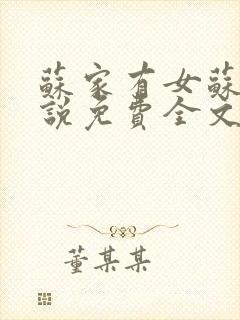 蘇家有女蘇
說免費全文
董某某